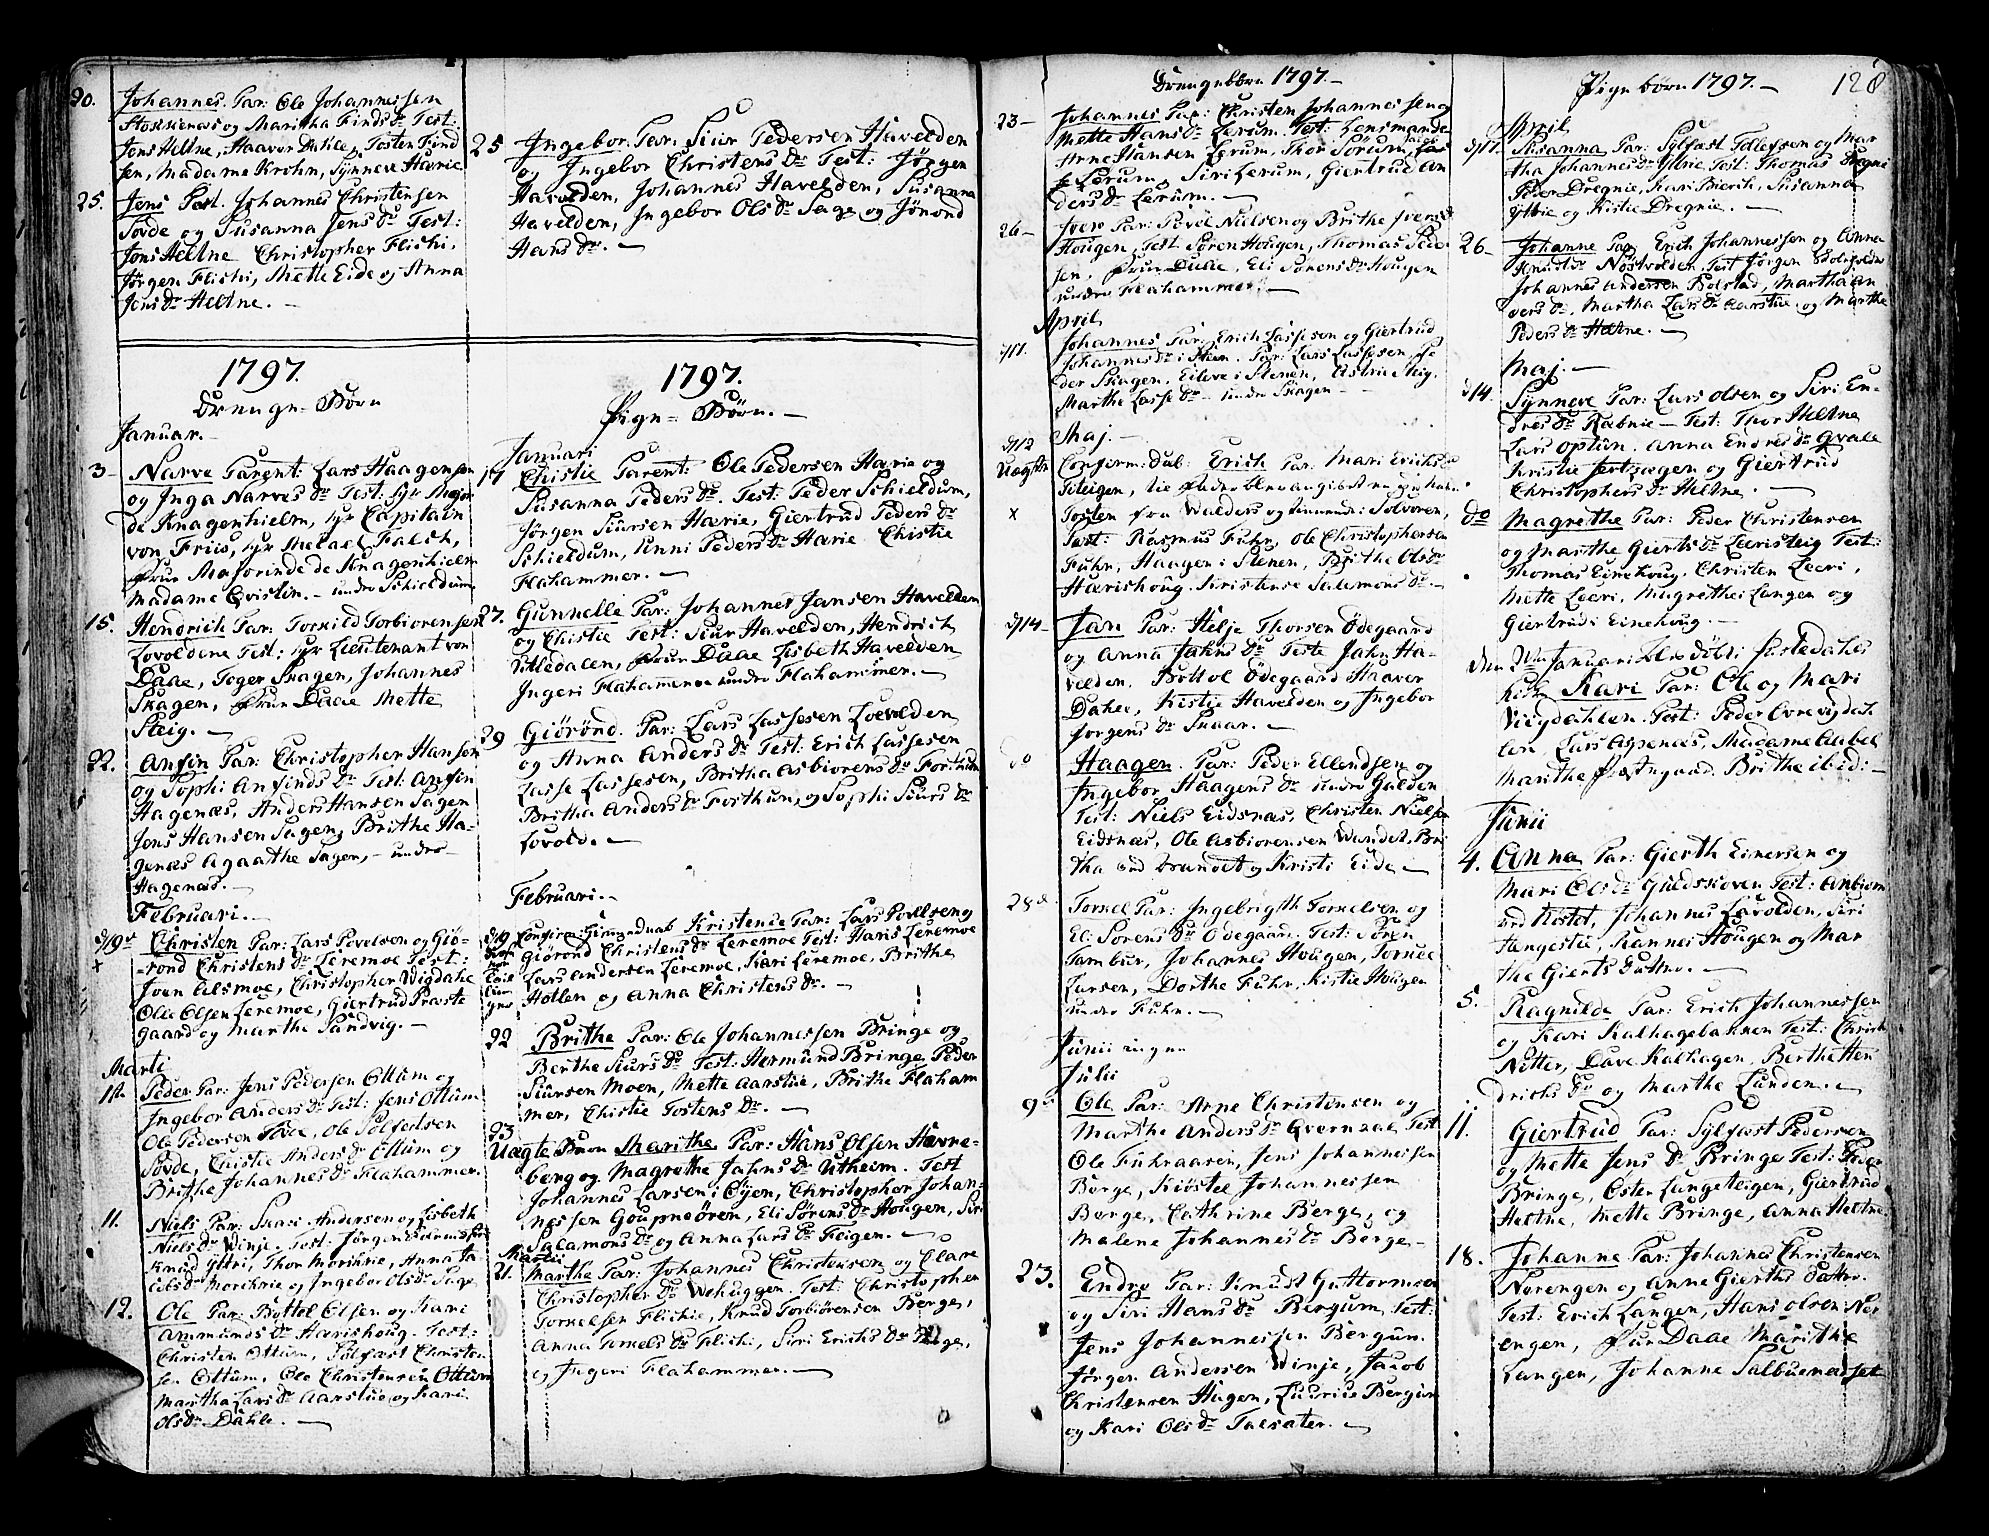 20. Johannes. Par: Ole Johannessen
Stokkenæs og Maritha Finds Dr Test:
Jens Heltne, Haavor Dahle, Tosten Find
sen, Madame Krohn, Synneve Hærie
25. Jens Par. Johannes Christensen
Sovde og Susanna Jens Dr Test:
Jens Heltne Christopher Flichi,
Jørgen Flichi, Mette Eide og Anna
Jens Dr Heltne. —
1797.
Drenge-Børn
Januar. —
3 — Narve Parent: Lars Haagensen
og Inga Narves Dr Test: Hr Major
de Knagenhielm, Hr Capitain
von Friis, Hr Falch,
Frue Majorinde de Knagenhielm
Madame Qvistin. — undre Schieldum
15. Hendrich Par: Torkild Torbiorensen
Lovoldene Test: Hr Lieutenant von
Daae, Toger Skagen, Johannes
Skagen, Frue Daae Mette
Steig. —
22. Anfin Par: Christopher Hansen
og Sophi Anfinds Dr Test: Anfin
Hagenæs, Anders Hansen Sagen
Jens Hansen Sagen, Brithe Ha-
genæs Agaathe Sagen, — undre
Hagenæs. —
Februari. —
d/19de Christen Par: Lars Povelsen og Giø-
rond Christens Dr Leremoe Test:
Iven Alsmoe, Christopher Wigdahle
Ole Olsen Leremoe, Giertrud Præste
gaard og Marthe Sandvig. —
Marti
12. Peder Par: Jens Pedersen Ottum og
Ingebor Anders Dr Test: Jens Ottum
Ole Pedersen Sovde, Ole Sølfestsen
Sovde, Christie Anders Dr Ottum og
Brithe Johannes Dr Flahammer.
11. Niels Par: Andersen og Lisbeth
Niels Dr Winje. Test: Jørgen
Knud Yttri, Thor Morchrie, Anna Ja
cobs Dr Morchrie og Ingebor Ols Dr Sage
12. Ole Par: Bottel Olsen og Kari
Ammunds Dr Hærishoug. Test:
Christen Ottum, Sølfæst Christen
sen Ottum, Ole Christensen Ottum
Martha Lars Dr Aarstue og Kari
Ols Dr Dahle. —
25 Ingebor. Par: Siur Pedersen Havelden
og Ingebor Christens Dr Test: Jørgen
Havelden, Johannes Havelden, Susanna
Havelden, Ingebor Ols Dr Sage og Jørond
Hans Dr. —
1797.
Pige-Børn. —
Januari
17 Christie Parent: Ole Pedersen Hærie og
Susanna Peders Dr. Test: Peder Schieldum,
Jørgen Siursen Hærie, Giertrud Peders Dr
Schieldum, Unni Peders Dr Hærie Christie
Flahammer. —
27. Gunnelle Par: Johannes Jansen Havelden
og Christie Test: Siur Havelden, Hendrich
Utledalen, Frue Daae Lisbeth Havelden
Ingeri Flahammer undre Flahammer. —
29 Giørønd. Par: Lars Lassesen Loevolden
og Anna Anders Dr Test: Erich Lassesen
Lasse Lassesen, Britha Asbiorens Dr Forthun
Britha Anders Dr Forthun, og Sophi Siurs Dr
Lovold. —
Februari. —
d/19 Confirm: Kristence Par: Lars Povelsen og
Giørond Christens Dr Leremoe Test: Hans Leremoe
Lars Andersen Leremoe, Kari Leremoe, Brithe
Hollen og Anna Christens Dr. —
22 Brithe Par: Ole Johannessen Bringe og
Berthe Siurs Dr Test: Hermund Bringe, Peder
Siursen Moen, Mette Aarstue, Brithe Flaham
mer, Christie Tostens Dr. —
23
Uægte Barn Marithe Par: Hans Olsen Havne-
berg og Magrethe Jahns Dr Utheim. Test
Johannes Larsen i Øyen, Christopher Johan-
nessen Goupneøren, Eli Sørens Dr Hougen, Siri
Salamons Dr og Anna Lars Dr Feigen. —
Martii
21. Marthe Par: Johannes Christensen og Clare
Christopher Dr Wehuggen Test: Christopher
Tornelsen Flichie, Knud Torbiørensen Berge,
Anna Tornels Dr Flichi, Siri Erichs Dr Berge,
og Ingeri Flahammer. —
Drengebørn 1797. —
23 — Johannes Par: Christen Johannessen og
Mette Hans Dr Lerum. Test: Lensmande
Arne Hansen Lerum, Thor Sorum,
Lerum, Siri Lerum, Giertrud An
ders Dr Lerum. —
26 — Iver Par: Povel Nielsen og Brithe Ivers Dr
Hougen, Test Søren Hougen, Thomas
sen, Frue Daae, Eli Sørens Dr Hougen
undre Flahammer. —
April
d/17. Johannes Par: Erich Lassesen og Giertrud
Johannes Dr i Steen. Par: Lars Lassesen, Pe
der Skagen, Eileve i Stenen, Astrie Steig,
Marthe Lasse Dr — undre Skagen —
d/12 Maj. —
Uægte Confirm: Dab: Erich Par: Mari Erichs Dr
Steigen, til Fader blev angivet
x Tosten fra Walders og Solvoren,
Test: Rasmus Fuhr, Ole Christophersen
Fuhr, Haagen i Stenen, Brithe Ols Dr
Hærishoug. Kristense Salemons Dr. —
d/14 — Jan Par: Helje Thorsen Ødegaard
og Anna Jahns Dr Teste Jahn Ha-
velden, Bottol Ødegaard Haavor
Dahle, Kistie Havelden og Ingebor
Jorgens Dr Snaar. —
do Haagen. Par: Peder Ellendsen og
Ingebor Haagens Dr undre Galden
Test: Niels Eidsnæs, Christen Nielsen
Eidsnæs, Ole Asbiorensen Wandet, Bri
tha ved vandet og Kristi Eide —
28de Tornel Par: Ingebrigth Tornelsen og
Eli Sorens Dr Odegaard. Test: Søren
Tambur, Johannes Hougen, Tornel
Larsen, Dorthe Fuhr, Kistie Hougen
undre Fuhr. —
Junii ingen
Julii
9de Ole Par: Arne Christensen og
Marthe Anders Dr Qvernsal Test
Ole Fuhraasen, Jens Johannessen
Berge, Kiøstel Johannessen
Berge, Cathrine Berge, og
Malene Johannes Dr Berge —
23. Endre Par: Knud Guttormsen
og Siri Hans Dr Bergum, Test:
Jens Johannessen Bergum
Jørgen Andersen Winje, Jacob
Christensen Hugen, Lucrius Bergum
og Kari Ols Dr Talsater. —
Pige børn 1797. — 128
April
d/17. Susanna Par: Sylfæst Tollefsen og Mar
tha Johannes Dr Yttrie Test: Thomas Dregni
Peder Dregnie, Kari Bierik, Susanna
Yttrie og Kistie Dregnie. —
26 — Johanne Par: Erich Johannessen og Anna
Knuds Dr Nøstvolden Test Jørgen
Johannes Andersen Bolstad, Martha An
ders Dr, Martha Lars Dr Aarstue og Marthe
Peders Dr Heltne. —
Maj. —
d/14. Synneve Par: Lars Olsen og Siri En-
dres Dr Ræbnie — Test: Thor Heltne
Lars Optun, Anna Endres Dr Qvale
Kristie og Giertrud
Christophers Dr Heltne. —
do Magrethe Par: Peder Christensen
og Marthe Gierts Dr Leeristeig Test:
Thomas Einehoug, Christen Leeri,
Mette Leeri, Magrethe i Langen og
Giertrud i Einehoug. —
den Januari blev døbt i Jostedahls
Kirke Kari Par: Ole og Mari
Viegdahlen. Test: Peder Øvrevigdah
len, Lars Aasenæs, Madame Aabel
Marithe Præstegaard. Brithe ibid: —
Junii
4. Anna Par: Gierth Einersen og
Mari Ols Dr Guldskoven Test: Anbiorn
ved Kostet, Johannes Lavolden, Siri
Hengestie, Hannes Hougen og Mar
the Gierts Datter. —
5. Ragnilde Par: Erich Johannessen
og Kari Kalhagebakken Test: Christi
Nitter, Dave Kalhagen, Berthe Hen
drichs Dr og Marthe Lunden. —
11. Giertrud Par: Sylfæst Pedersen
og Mette Jens Dr Bringe Test: Peder
Bringe, Osten Lungeteigen, Giertrud
Heltne, Mette Bringe, Anna Heltne
18. Johanne Par: Johannes Christensen
Norengen og Anne Gierths Datter.
Test: Erich Langen, Hans Olsen Nor
engen, Frue Daae Marithe
Langen, Johanne Salbuenæset